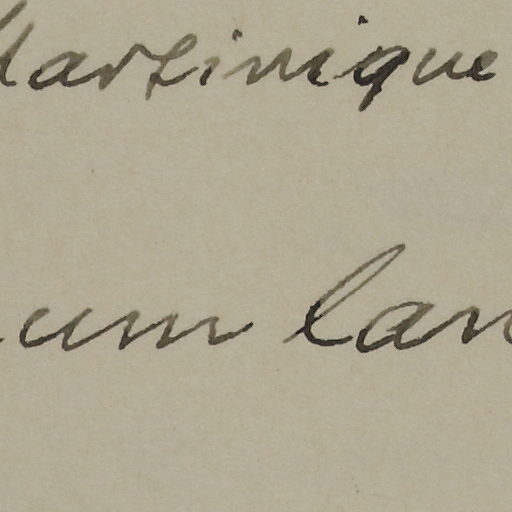 Martinique
um lan